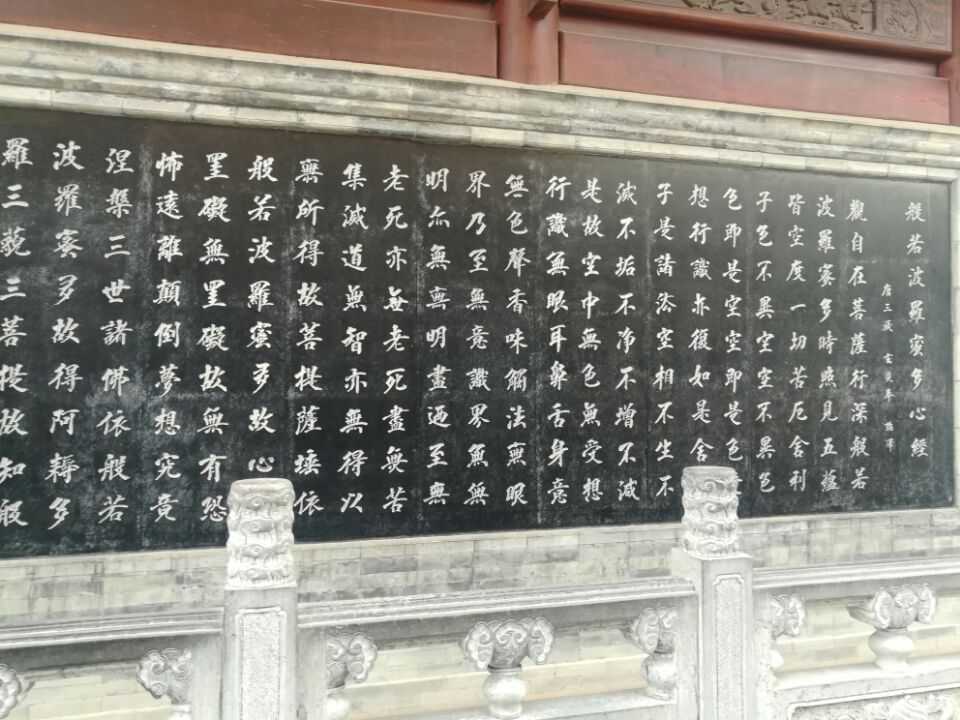 般若波羅蜜多心經
唐三藏 玄奘奉 詔譯
觀自在菩薩行深般若
波羅蜜多時照見五蘊
皆空度一切苦厄舍利
子色不異空空不異色
色即是空空即是色
想行識亦復如是舍
子是諸法空相不生不
滅不垢不净不增不減
是故空中無色無受想
行識無眼耳鼻舌身意
無色聲香味觸法無眼
界乃至無意識界無無
明亦無無明盡迺至無
老死亦無老死盡無苦
集滅道無智亦無得以
無所得故菩提薩埵依
般若波羅蜜多故心
罣礙無罣礙故無有恐
怖遠離顛倒夢想究竟
涅槃三世諸佛依般若
波羅蜜多故得阿耨多
羅三藐三菩提故知般